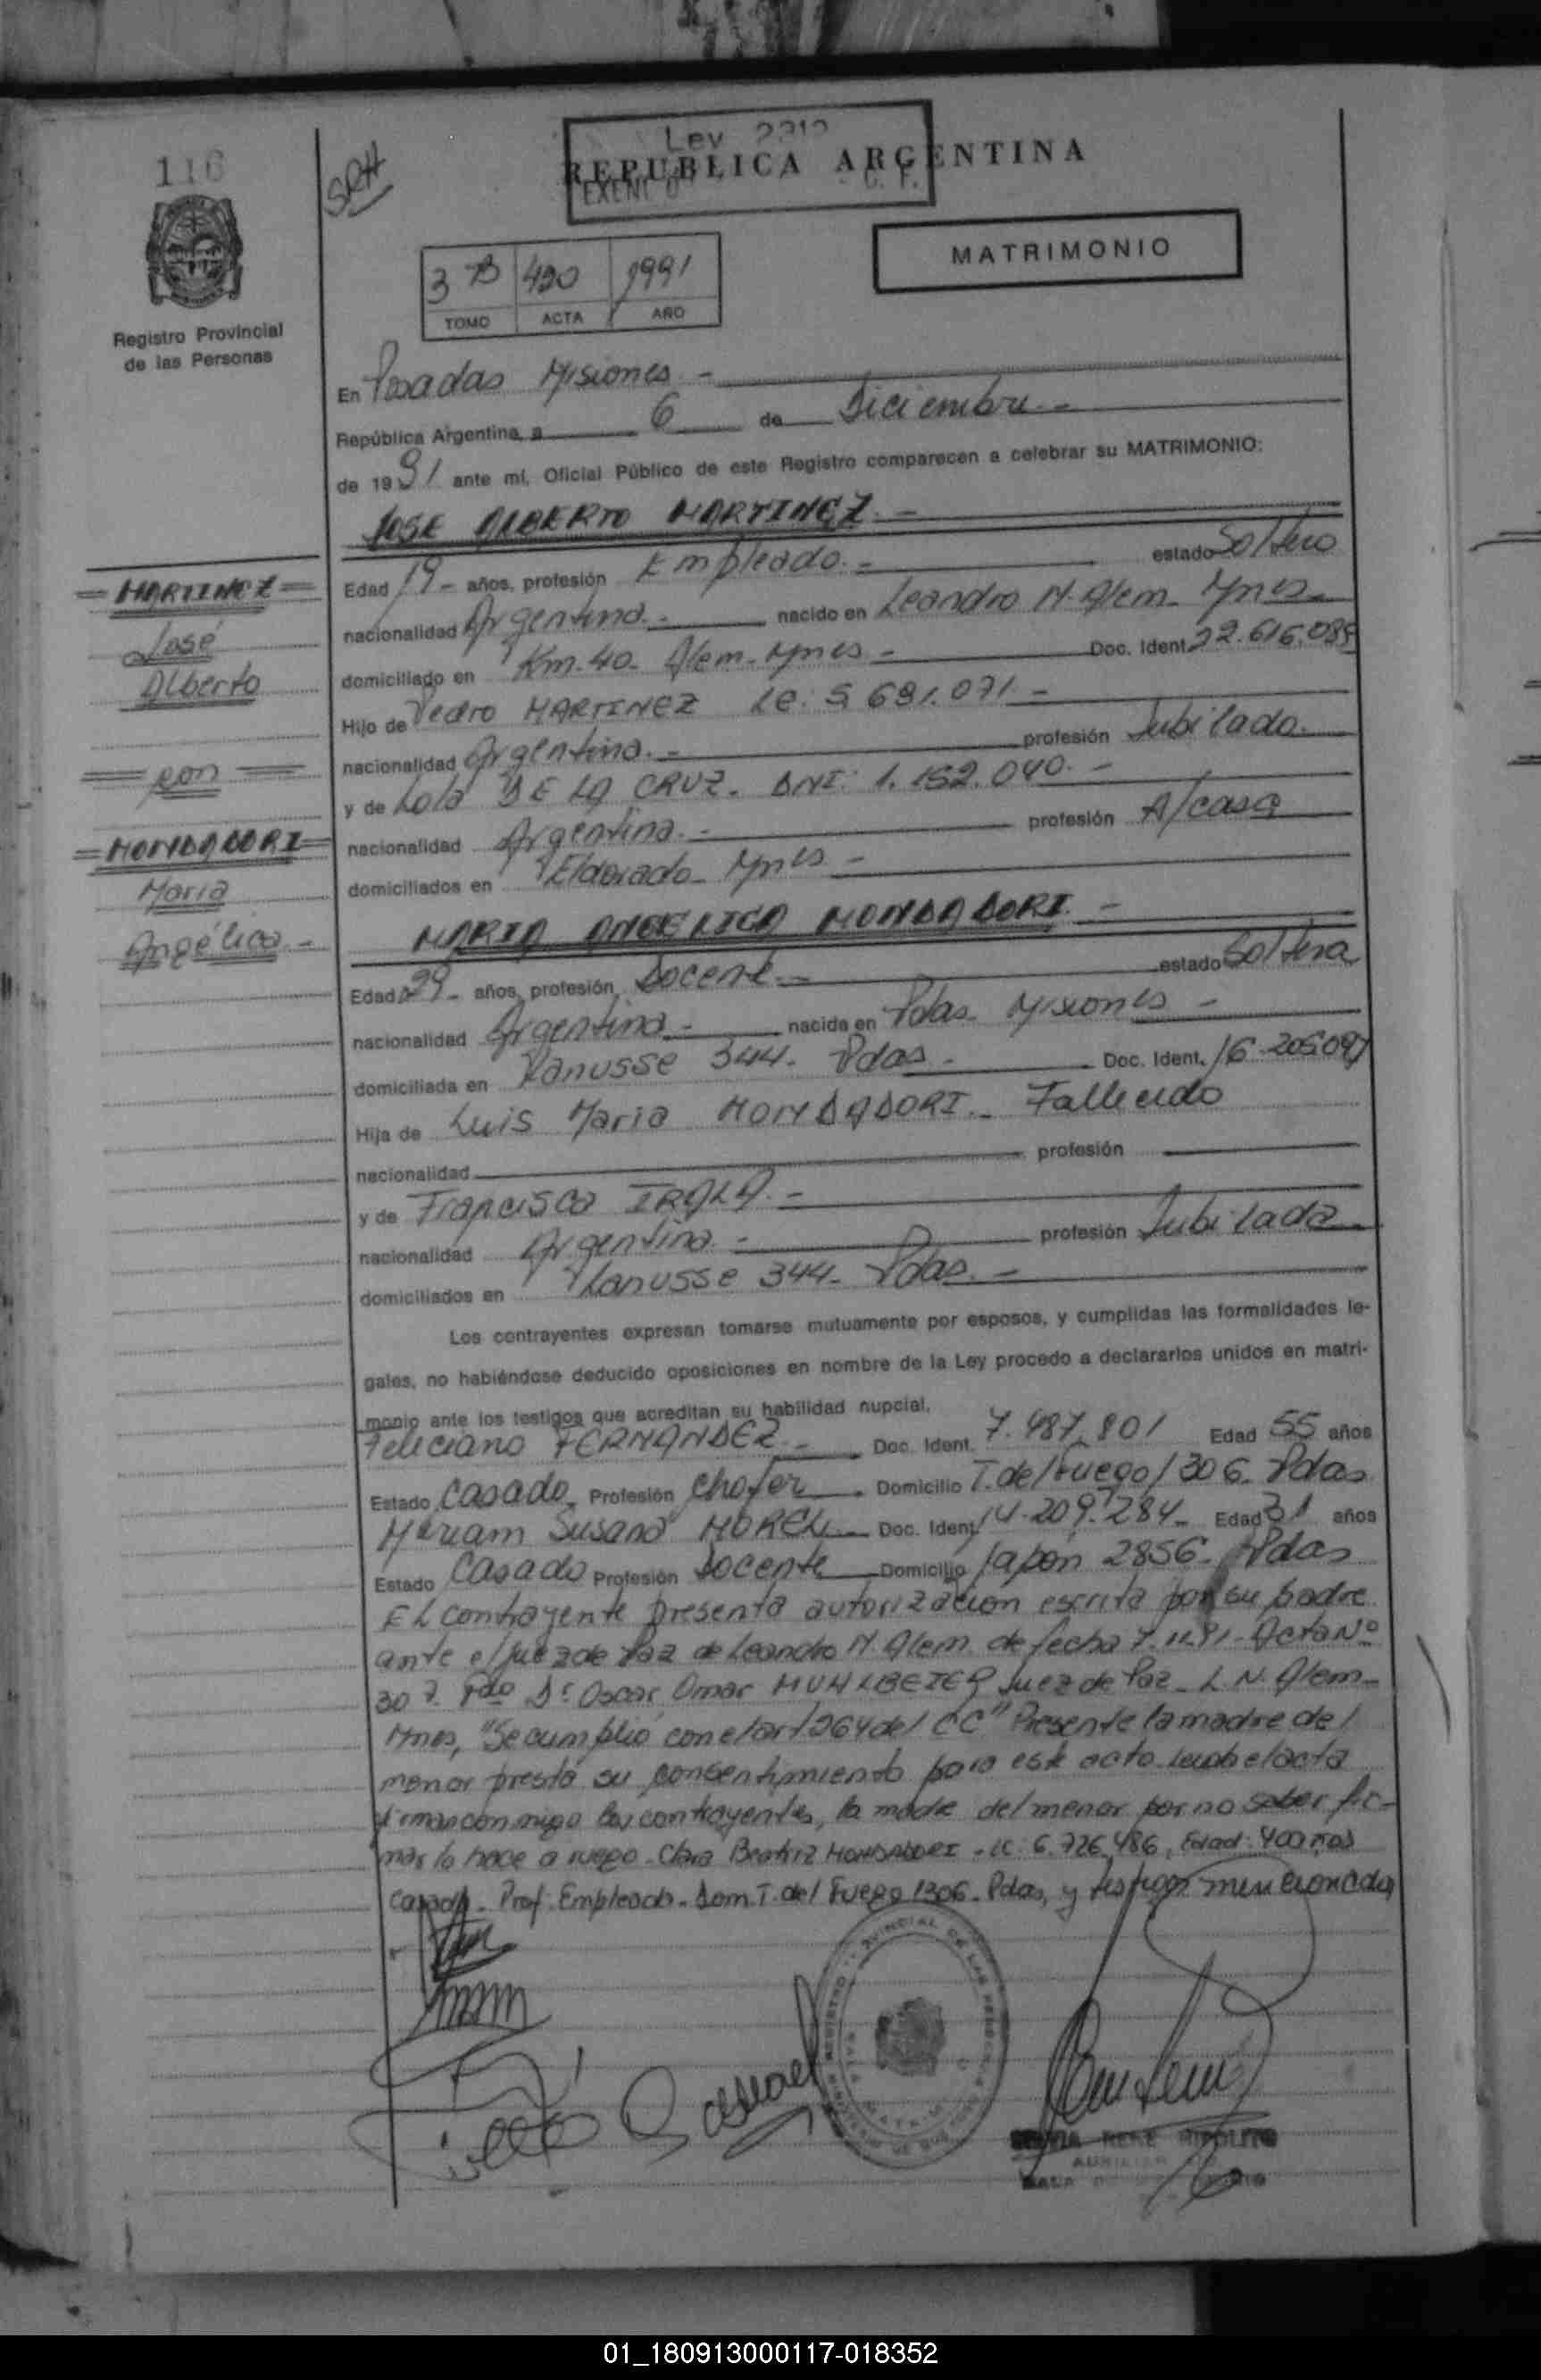 116
SRH
Ley 2312
REPUBLICA ARGENTINA
MATRIMONIO
3 B 490 1991
TOMO ACTA AÑO
Registro Provincial
de las Personas
En Posadas Misiones -
República Argentina, a 6 de Diciembre -
de 1991 ante mi, Oficial Público de este Registro comparecen a celebrar su MATRIMONIO:
JOSE ALBERTO MARTINEZ. -
Edad 19 - años, profesión Empleado. - estado Soltero
nacionalidad Argentina. - nacido en Leandro N. Alem - Mnes. -
domiciliado en Km. 40 - Alem - Mnes - Doc. Ident. 22.616.089
Hijo de Pedro MARTINEZ LE: 5 691.071. -
nacionalidad Argentina. - profesión Jubilado. -
y de Lola DE LA CRUZ. DNI: 1.152.040. -
nacionalidad Argentina. - profesión A/casa
domiciliados en Eldorado - Mnes -
= MARTINEZ =
José
Alberto
= con =
= MONDADORI =
María
Angélica -
MARIA ANGELICA MONDADORI. -
Edad 29 - años, profesión Docente - estado Soltera
nacionalidad Argentina - nacida en Pdas. Misiones -
domiciliada en Lanusse 344 - Pdas - Doc. Ident. 16.205.097
Hija de Luis Maria MONDADORI. - Fallecido
nacionalidad profesión
y de Francisca IRALA. -
nacionalidad Argentina. - profesión Jubilada -
domiciliados en Lanusse 344 - Pdas. -
Los contrayentes expresan tomarse mutuamente por esposos, y cumplidas las formalidades le-
gales, no habiéndose deducido oposiciones en nombre de la Ley procedo a declararlos unidos en matri-
monio ante los testigos que acreditan su habilidad nupcial.
Feliciano FERNANDEZ - Doc. Ident. 7.487.801 Edad 55 años
Estado Casado. Profesión Chofer Domicilio T. del Fuego 1306. Pdas
Miriam Susana MOREL - Doc. Ident. 14.209.284 - Edad 31 años
Estado Casado Profesión Docente Domicilio Japón 2856 - Pdas
El contrayente presenta autorización escrita por su padre
ante el Juez de Paz de Leandro N. Alem de fecha 7.11.91 - Acta Nº
307. Fdo Dr. Oscar Omar Juez de Paz - L. N. Alem -
Mnes, "Se cumplió con el art 264 del CC" Presente la madre del
menor presta su consentimiento para este acto. Leida el acta
firman conmigo los contrayentes, la madre del menor por no saber fir-
mar lo hace a ruego - Clara Beatriz MONDADORI - LC: 6.726.486, Edad: 40 años
Casada - Prof. Empleada - Dom. T. del Fuego 1306 - Pdas, y testigos mencionados
REGISTRO PROVINCIAL DE LAS PERSONAS
RENE HIPOLITO
AUXILIAR
01_180913000117-018352